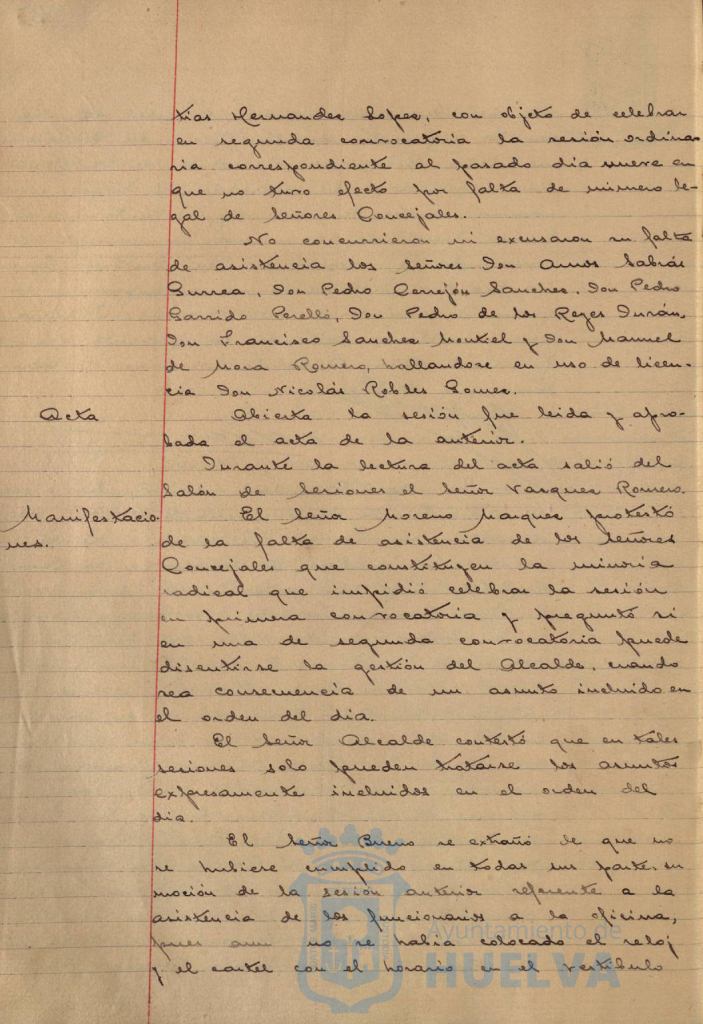 tias Hernandez Lopez, con objeto de celebrar
en segunda convocatoria la sesión ordina-
ria correspondiente al pasado dia nueve en
que no tuvo efecto por falta de número le-
gal de Señores Concejales.
No concurrieron ni excusaron su falta
de asistencia los Señores Don Amos Sabrás
Gurrea, Don Pedro Cerrejón Sanchez, Don Pedro
Garrido Perelló, Don Pedro de los Reyes Durán,
Don Francisco Sanchez Montiel y Don Manuel
de Mora Romero, hallandose en uso de licen-
cia Don Nicolás Robles Gomez.
Acta
Abierta la sesión fue leida y apro-
bada el acta de la anterior.
Durante la lectura del acta salió del
Salón de Sesiones el Señor Vazquez Romero.
Manifestacio-
nes.
El Señor Moreno Marquez protestó
de la falta de asistencia de los Señores
Concejales que constituyen la minoria
radical que impidió celebrar la sesión
en primera convocatoria y preguntó si
en una de segunda convocatoria puede
discutirse la gestión del Alcalde, cuando
sea consecuencia de un asunto incluido en
el orden del dia.
El Señor Alcalde contestó que en tales
sesiones solo pueden tratarse los asuntos
expresamente incluidos en el orden del
dia.
El Señor Bueno se extrañó de que no
se hubiese cumplido en todas sus parte su
moción de la sesión anterior referente a la
asistencia de los funcionarios a la oficina,
pues aun no se habia colocado el reloj
y el cartel con el horario en el vestibulo
Ayuntamiento de
HUELVA